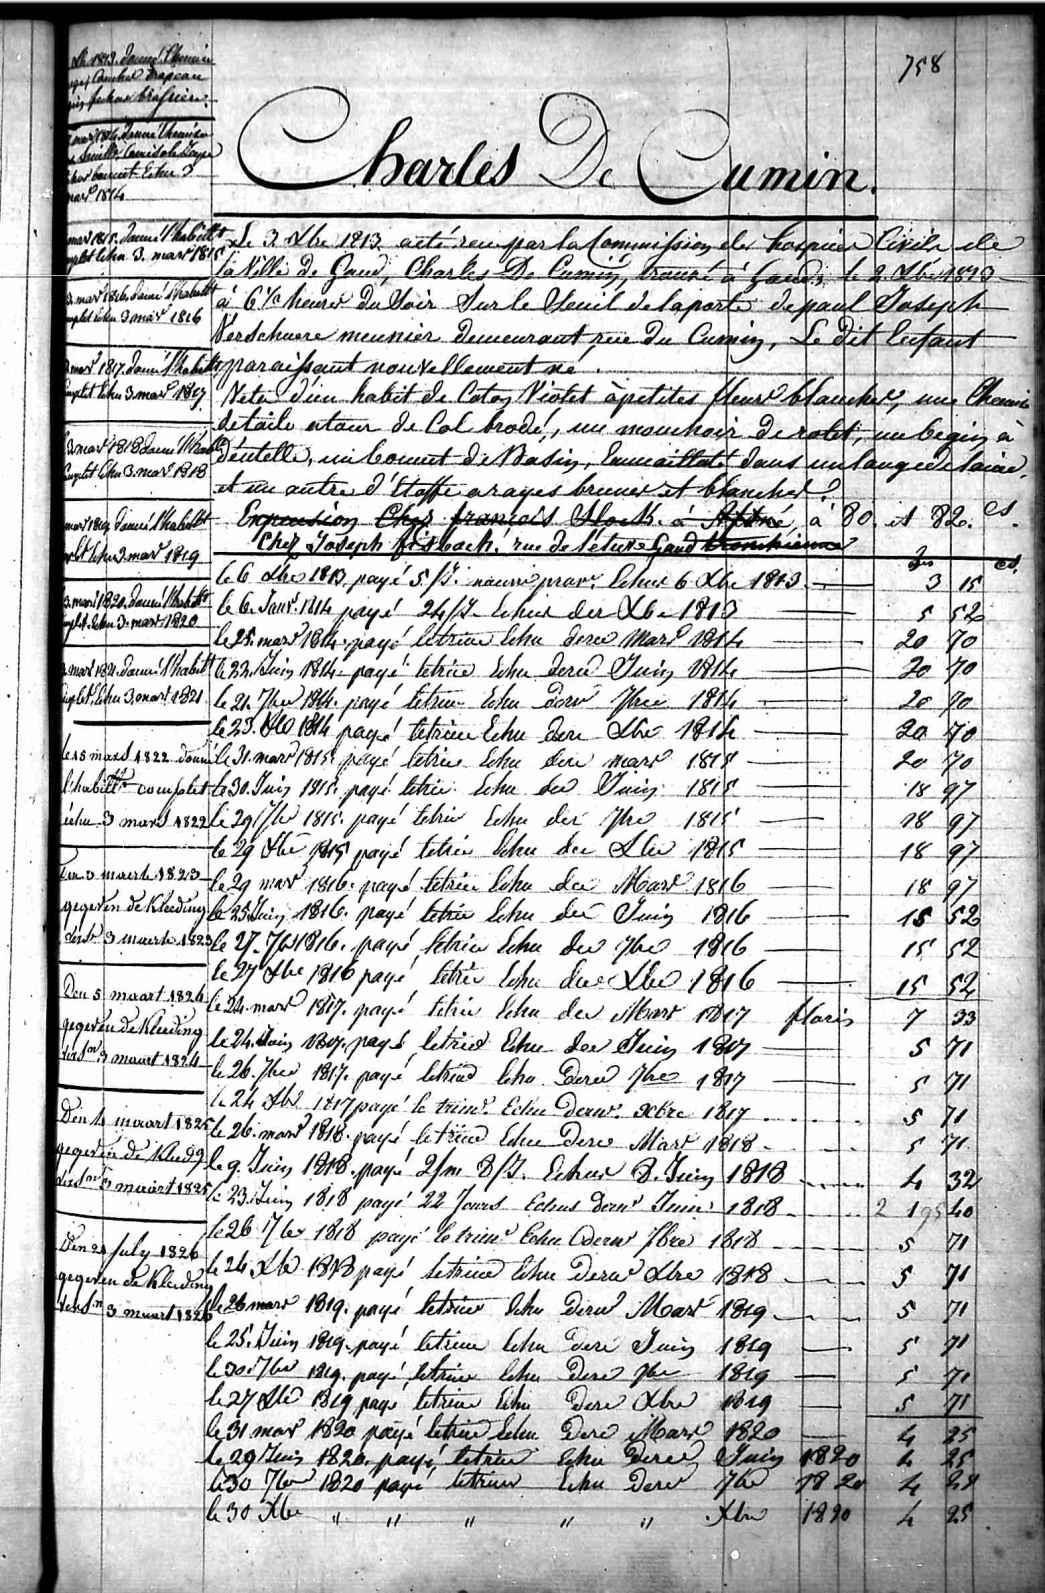 758
Charles De Cumin.
Le 3 Xbre 1813 acté reçu par la Commission des hospices Civils de
la Ville de Gand, Charles De Cumin, trouvé à Gand, le 2 Xbre 1813
à 6 ½ heures du Soir Sur le Seuil de la porte de paul Joseph
Verschuere meunier demeurant rue du Cumin, Le dit Enfant
paraissant nouvellement né.
Vetu d'un habit de Coton Violet à petites fleurs blanches, une Chemise
de toile atour de Col brodé, un mouchoir de un begin à
déntelle, un bonnet de Basin, Emmailloté dans un lange de laine,
et un autre d'étoffe a rayes brunes et blanches.
Expension Chez françois Block. à à 80. et 82. Cs.
Chez Joseph rue de Gand
le 6 Xbre 1813, payé 5/J. Echus 6 Xbre 1813 3 15
le 6. Janv. 1814 payé 24/J. Echus der Xbre 1813 5 52
le 25. mars 1814. payé letrim Echu dere Mars 1814 20 70
le 22. Juin 1814. payé letrim Echu dere Juin 1814 20 70
le 21. 7bre 1814. payé letrim Echu dere 7bre 1814 20 70
le 23. Xbre 1814 payé letrim Echu dere Xbre 1814 20 70
le 31. mars 1815. payé letrim Echu dere mars 1815 20 70
le 30. Juin 1815. payé letrim Echu der Juin 1815 18 97
le 29 7bre 1815. payé letrim Echu der 7bre 1815 18 97
le 29 Xbre 1815 payé letrim Echu der Xbre 1815 18 97
le 29 mars 1816. payé letrim Echu der Mars 1816 18 97
le 25 Juin 1816. payé letrim Echu der Juin 1816 15 52
le 27. 7bre 1816. payé letrim Echu der 7bre 1816 15 52
le 27 Xbre 1816 payé letrim Echu der Xbre 1816 15 52
le 24. mars 1817. payé letrim Echu der Mars 1817 floris 7 33
le 24. Juin 1817. payé letrim Echu der Juin 1817 5 71
le 26. 7bre 1817. payé letrim Echu Dere 7bre 1817 5 71
le 24 Xbre 1817 payé le trimr. Echu Derner. Xbre 1817 5 71
le 26. mars 1818. payé letrim Echu Dere Mars 1818 5 71
le 9. Juin 1818. payé 2/m 8/J. Echus 8. Juin 1818 4 32
le 23. Juin 1818 payé 22 Jours Echus derner Juin 1818 40
le 26 7bre 1818 payé le trimr Echu Derner 7bre 1818 5 71
le 24 Xbre 1818 payé letrim Echu Derner Xbre 1818 5 71
le 26 mars 1819. payé letrim Echu Derner Mars 1819 5 71
le 25. Juin 1819. payé letrim Echu dere Juin 1819 5 71
le 30. 7bre 1819. payé letrim Echu Dere 7bre 1819 5 71
le 27 Xbre 1819 payé letrim Echu Dere Xbre 1819 5 71
le 31 mars 1820 payé letrim Echu Dere Mars 1820 4 25
le 29 Juin 1820. payé letrim Echu Dere Juin 1820 4 25
le 30 7bre 1820 payé letrim Echu Dere 7bre 1820 4 25
le 30 Xbre " " " " " Xbre 1820 4 25
mars 1814
mars 1815. donné l'habillt
complet Echu 3. mars 1815
3. mars 1816. donné l'habillt
complet Echu 3 mars 1816
3 mars 1817. donné l'habillt
complet Echu 3. mars 1817.
3 mars 1818 donné l'habillt
Complet Echu 3. mars 1818
mars 1819 donné l'habillt
Echu 3 mars 1819
3. mars 1820. donné l'habillt
Echu 3. mars 1820
3 mars 1821. donné l'habillt
Complet. Echu 3. mars 1821
le 15 mars 1822 donné
l'habillt complet
échu 3 mars 1822
Den 3 maerte 1823
gegeven de Kleeding
3 maerte 1823
Den 5 maart 1824
gegeven de Kleeding
3 maart 1824
Den 4 maart 1825
gegeven de Kleedg
3 maart 1825
Den 24 July 1826
gegeven de Kleeding
3 maart 1826